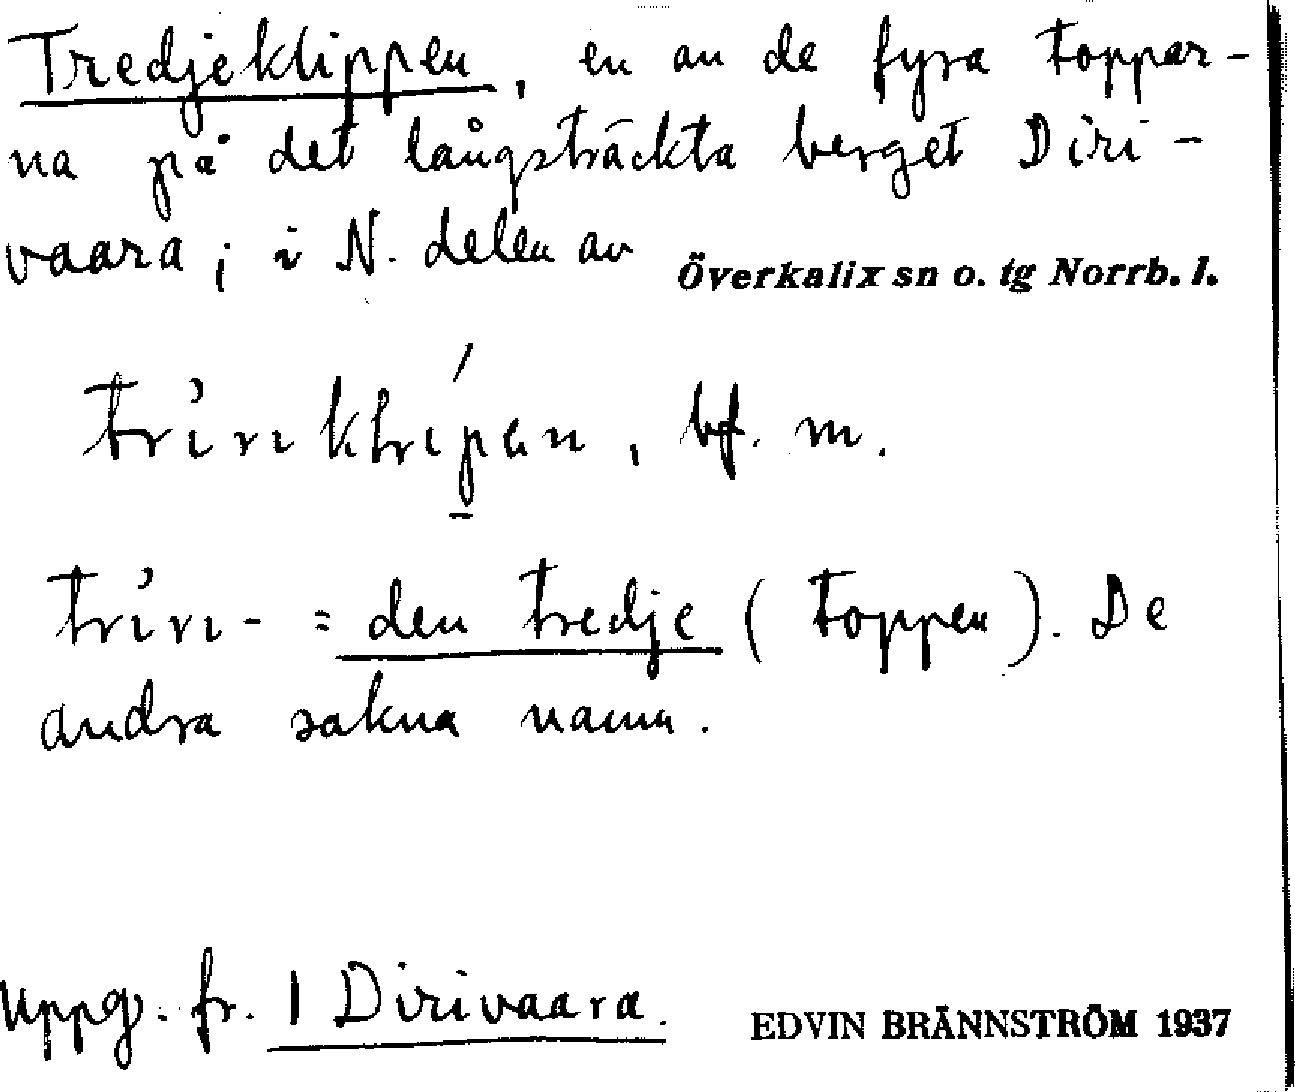 Tredjeklippen, en av de fyra toppar-
na på det långsträckta berget Diri-
vaara; i N. delen av Överkalix sn o. tg Norrb. l.
bf. m.
= den tredje (toppen). De
andra sakna namn.
Uppg. fr. 1 Dirivaara. EDVIN BRÄNNSTRÖM 1937